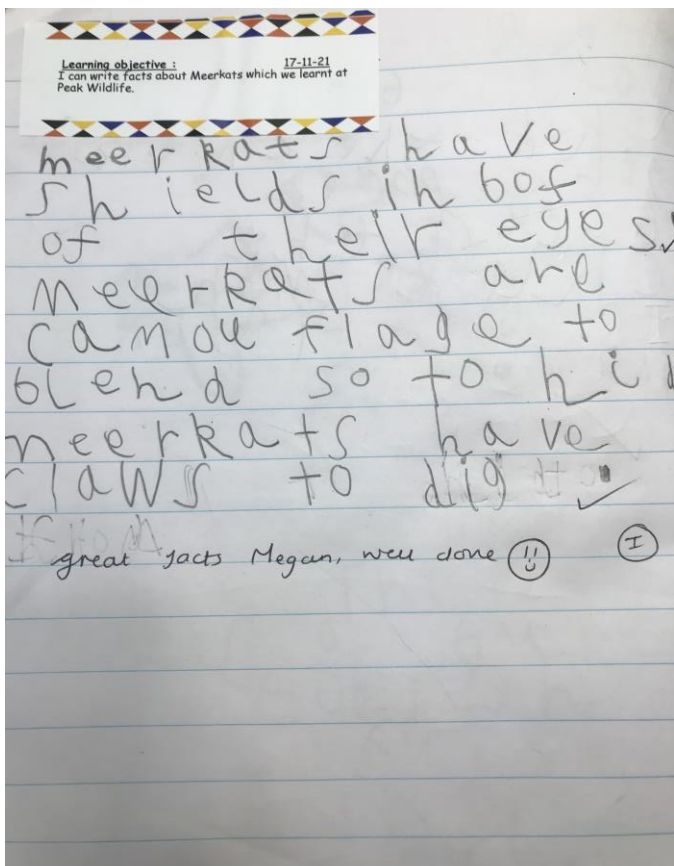 Learning objective : 17-11-21
I can write facts about Meerkats which we learnt at
Peak Wildlife.
meerkats have
shields in bof
of their eyes.
meerkats are
camouflage to
blend so to hid
meerkats have
claws to dig
great facts Megan, well done
I